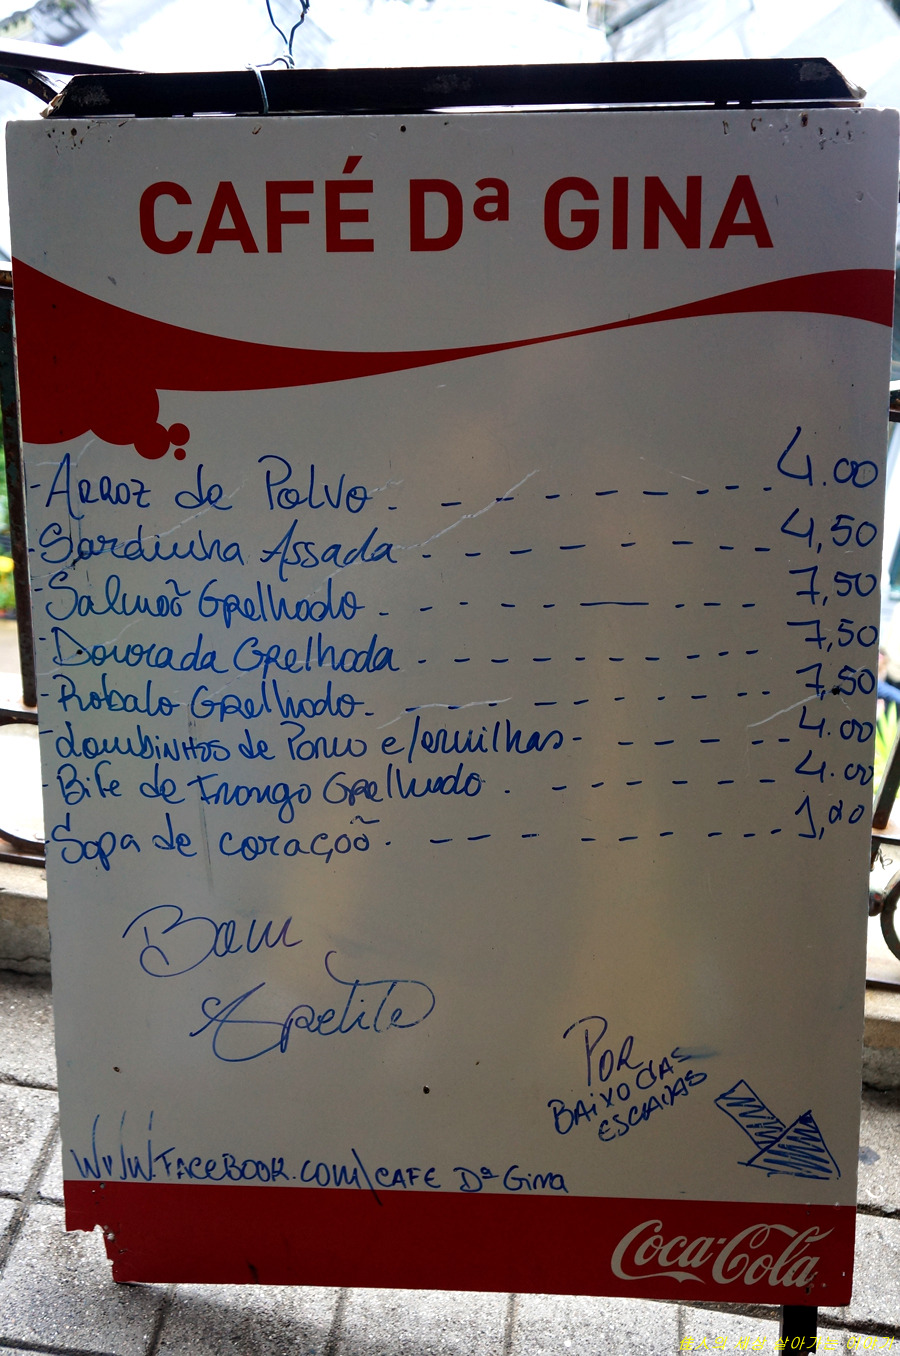 CAFÉ Dª GINA
- Arroz de Polvo . - - - - - - - - - 4.00
- Sardinha Assada - - - - - - - - 4,50
- Salmoõ Grelhado - - - - - - - - - 7,50
- Dourada Grelhada - - - - - - - - - - 7,50
- Robalo Grelhado - - - - - - - - - 7,50
- Lombinhos de Porco c/ervilhas - - - - - - - 4.00
- Bife de Frango Grelhado . - - - - - - - 4.00
- Sopa de coraçoõ - - - - - - - - - 1,00
Bom
Apetite
POR
BAIXO DAS
ESCADAS
www.FACEBOOK.com\CAFE Dª Gina
Coca-Cola
살아가는